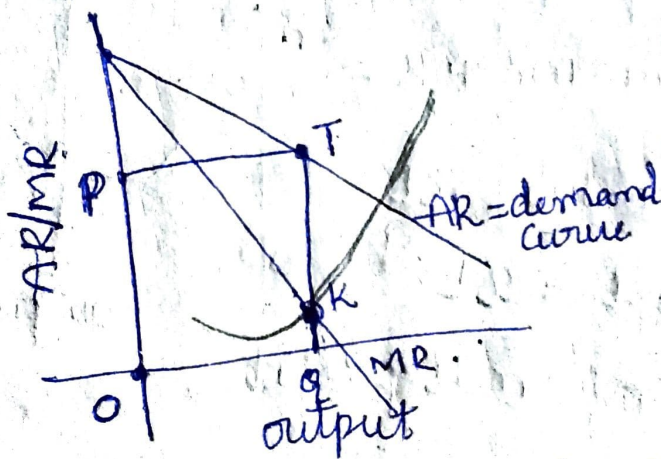 AR/MR
P
T
AR=demand
curve
K
MR.
O
q
output